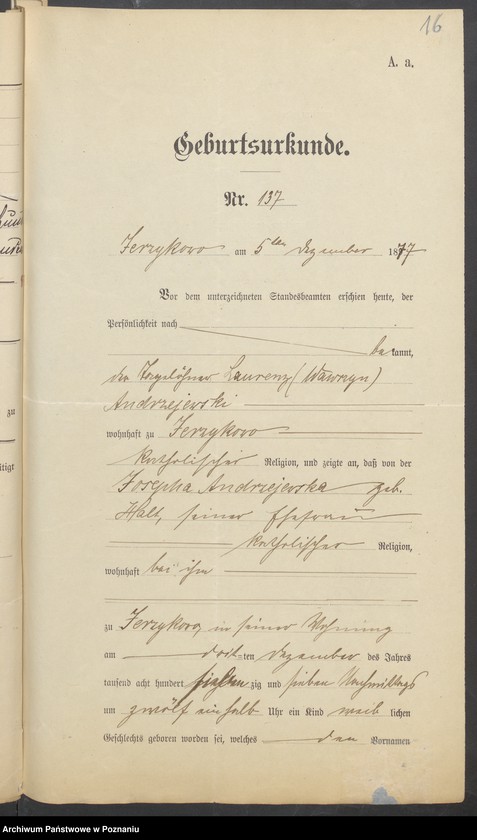 16
A. a.
Geburtsurkunde.
Nr. 137
Jerzykowo am 5ten Dezember 1877
Vor dem unterzeichneten Standesbeamten erschien heute, der
Persönlichkeit nach
bekannt,
der Tagelöhner Laurenz (Wawrzyn)
Andrzejewski
wohnhaft zu Jerzykowo
katholischer Religion, und zeigte an, daß von der
Josepha Andrzejewska geb.
seiner Ehefrau
katholischer Religion,
wohnhaft bei ihm
zu Jerzykowo, in seiner Wohnung
am dritten Dezember des Jahres
tausend acht hundert siebenzig und sieben Nachmittags
um zwölf einhalb Uhr ein Kind weiblichen
Geschlechts geboren worden sei, welches den Vornamen
zu
Archiwum Państwowe w Poznaniu